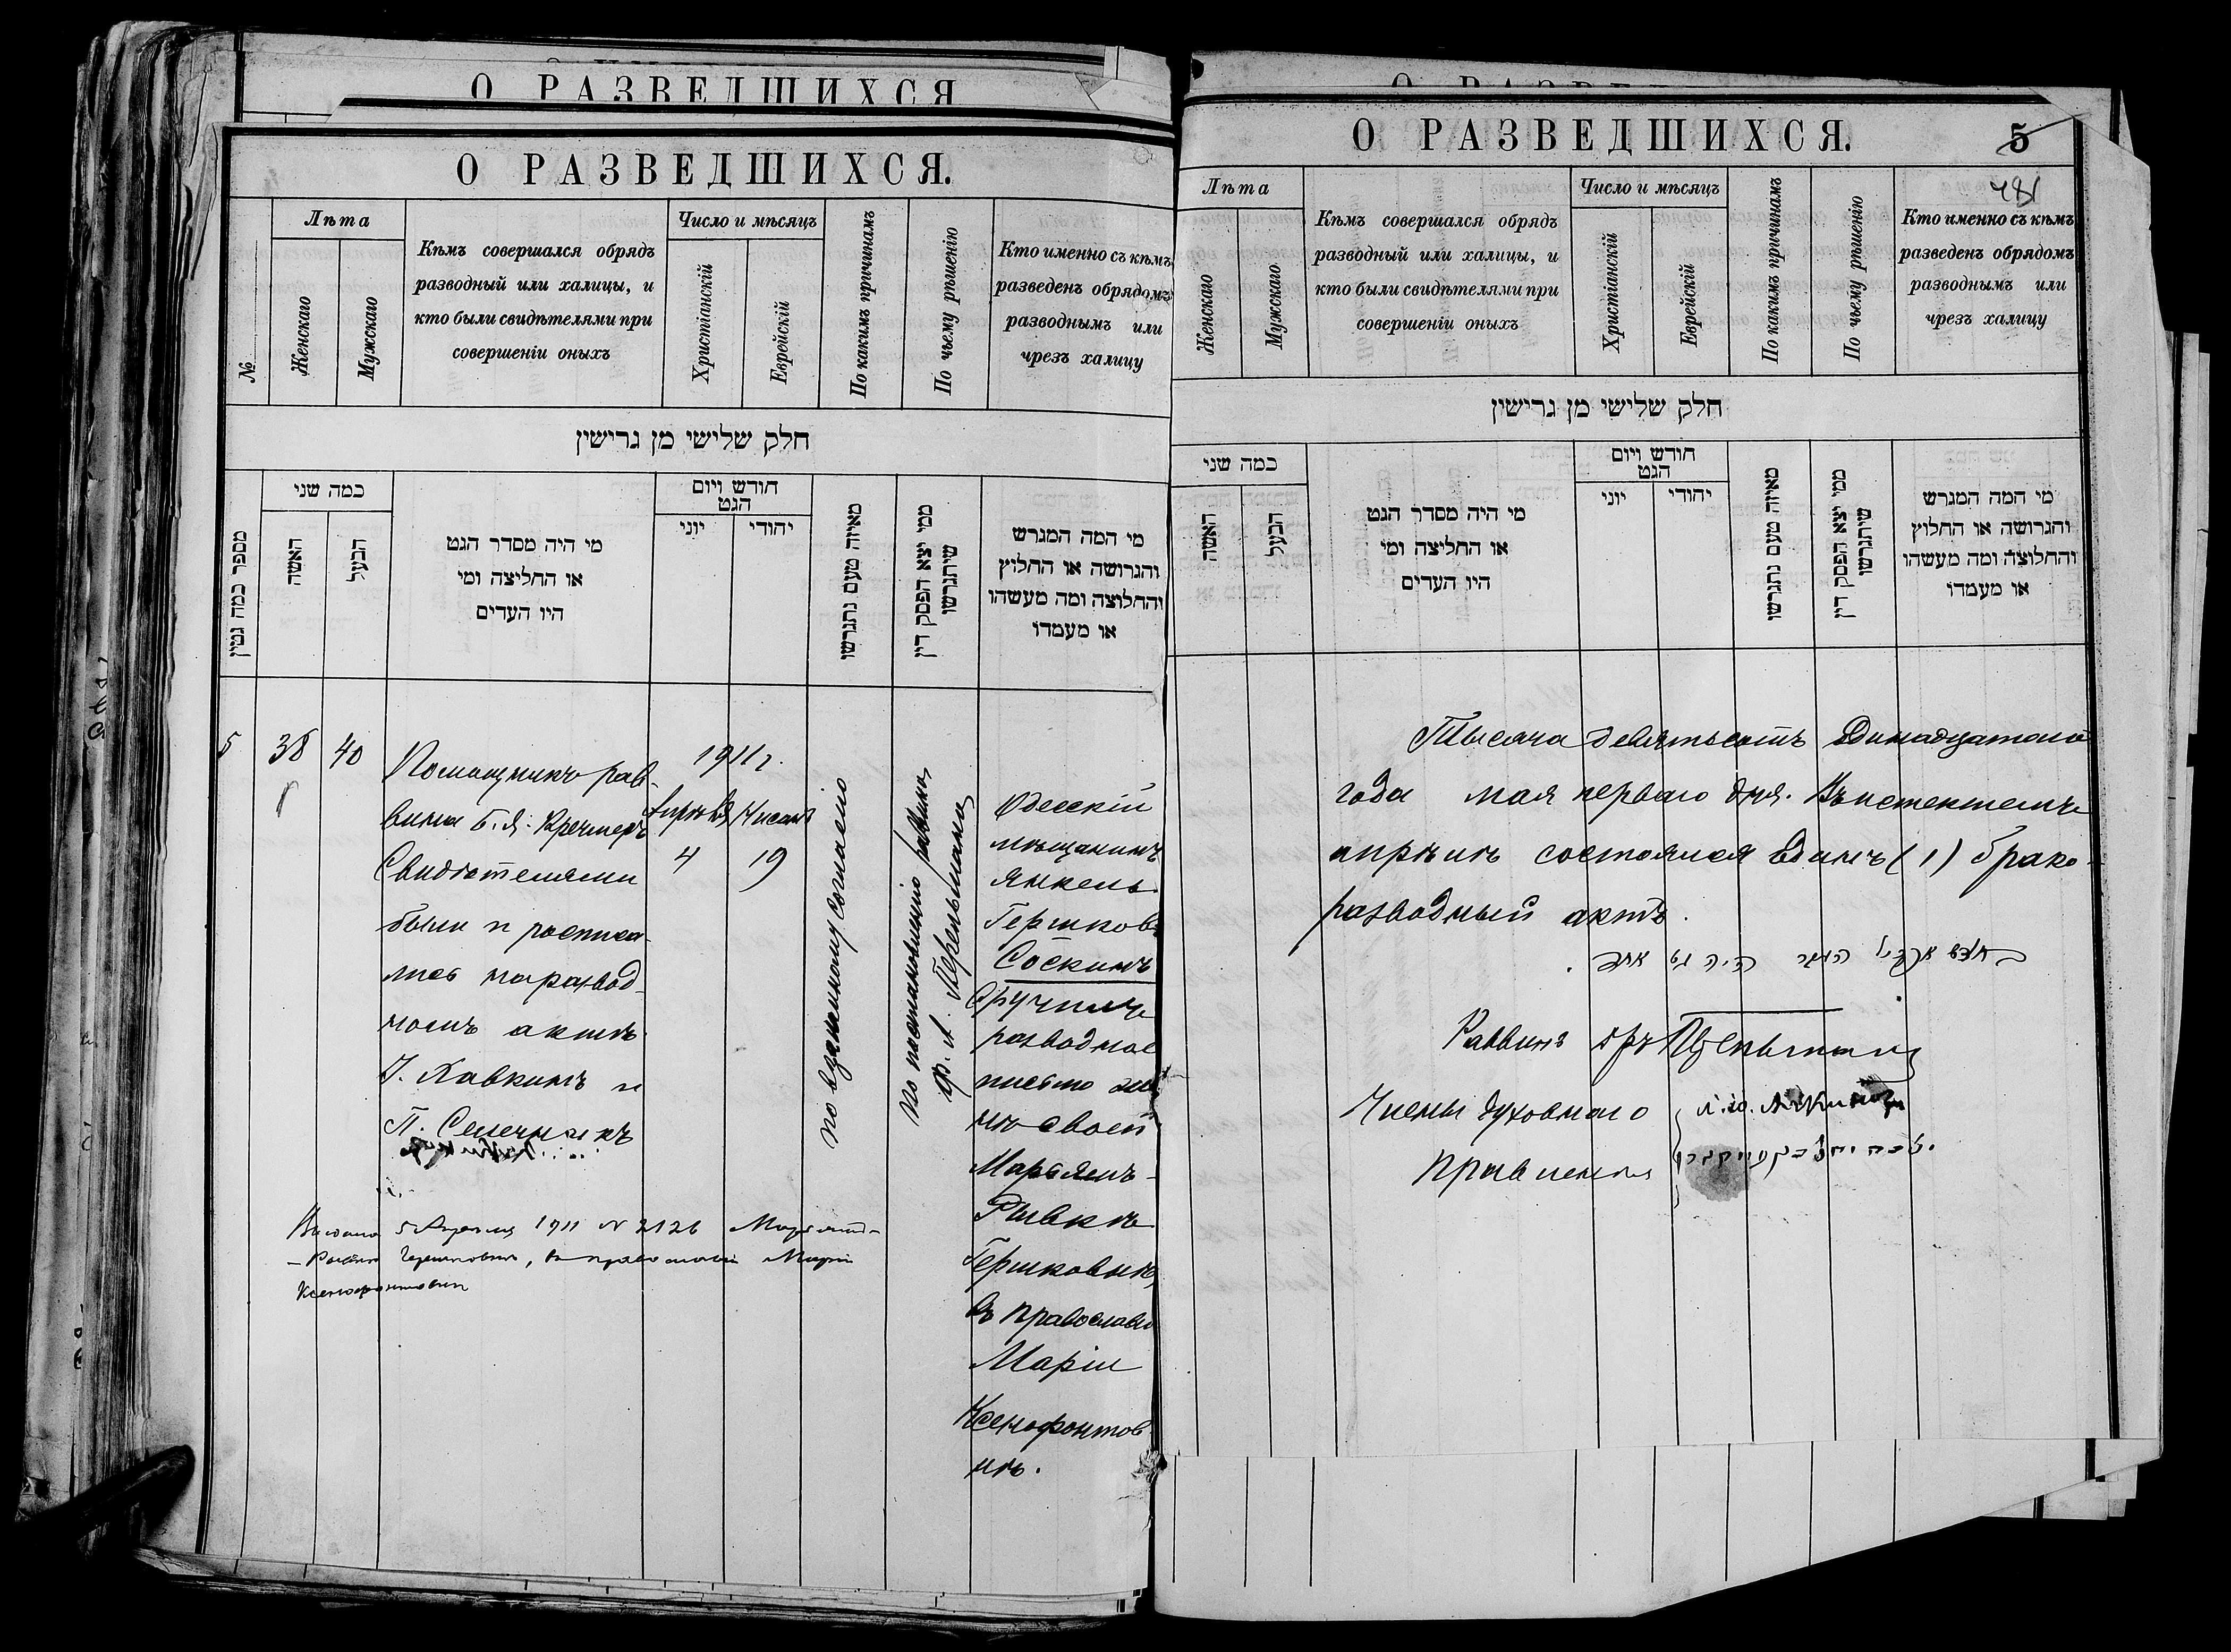 О РАЗВЕДШИХСЯ
О РАЗВЕДШИХСЯ.
№
Лѣта
Женскаго
Мужскаго
Кѣмъ совершался обрядъ
разводный или халицы, и
кто были свидѣтелями при
совершеніи оныхъ
Число и мѣсяцъ
Христіанскій
Еврейскій
По какимъ причинамъ
По чьему рѣшенію
Кто именно съ кѣмъ
разведенъ обрядомъ
разводнымъ или
чрезъ халицу
חלק שלישי מן גרישין
מספר כמה גטין
כמה שני
האשה
הבעל
מי היה מסדר הגט
או החליצה ומי
היו העדים
חודש ויום
הגט
יוני
יהודי
מאיזה טעם נתגרשו
ממי יצא הפסק דין
שיתגרשו
מי המה המגרש
והגרושה או החלוץ
והחלוצה ומה מעשהו
או מעמדו
5
38
40
Помощникъ рав-
вина Б. Я. Кречмеръ
Свидѣтелями
были и росписа-
лись на развод-
номъ актѣ
Хавкинъ и
П.
1911 г.
Апрѣля
Нисана
4
19
по взаимному согласію
по постановленію раввина
Одесскій
мѣщанинъ
Янкель
Гершковъ
Соскинъ
вручилъ
разводное
письмо же-
нѣ своей
Марьямъ-
Рывкѣ
Гершковнѣ,
въ православіи
Маріи
Ксенофонтов-
нѣ.
5 Апрѣля 1911 N 2126
въ православіи Маріи
Ксенофонтовнѣ
О РАЗВЕДШИХСЯ.
5
Лѣта
Женскаго
Мужскаго
Кѣмъ совершался обрядъ
разводный или халицы, и
кто были свидѣтелями при
совершеніи оныхъ
Число и мѣсяцъ
Христіанскій
Еврейскій
По какимъ причинамъ
По чьему рѣшенію
Кто именно съ кѣмъ
разведенъ обрядомъ
разводнымъ или
чрезъ халицу
חלק שלישי מן גרישין
כמה שני
האשה
הבעל
מי היה מסדר הגט
או החליצה ומי
היו העדים
חודש ויום
הגט
יוני
יהודי
מאיזה טעם נתגרשו
ממי יצא הפסק דין
שיתגרשו
מי המה המגרש
והגרושה או החלוץ
והחלוצה ומה מעשהו
או מעמדו
Тысяча девятьсотъ Одинадцатаго
года мая перваго дня. Въ истекшемъ
апрѣлѣ состоялся Одинъ (1) брако-
разводный актъ.
היה גט אחד
Раввинъ
Члены духовнаго
правленія